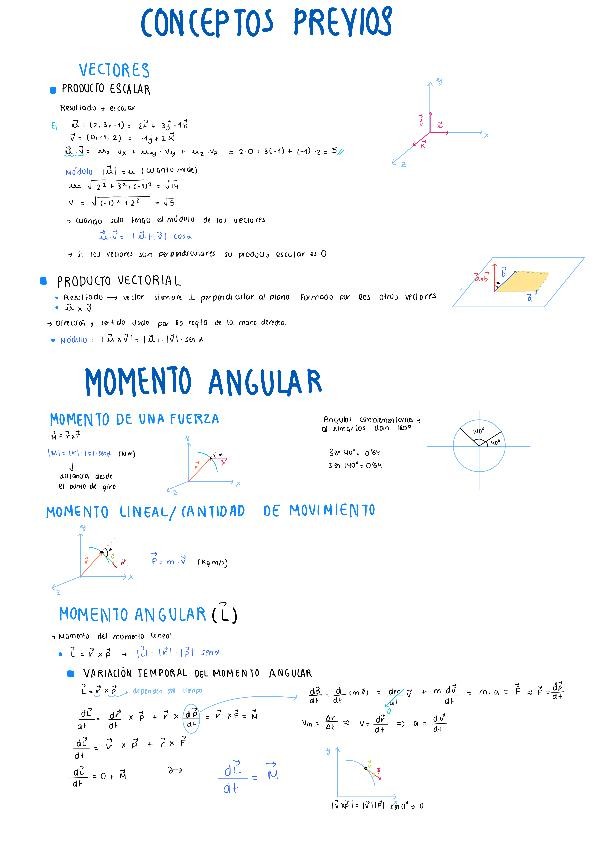 CONCEPTOS PREVIOS
VECTORES
PRODUCTO ESCALAR
Resultado → escalar
Ej
u⃗ = (2, 3, -1) = 2i⃗ + 3j⃗ - 1k⃗
u⃗ · v⃗ = ux · vx + uy · vy + uz · vz = 2·0 + 3(-1) + (-1)·2 = 5 //
Módulo |u⃗| = u
u = √2² + 3² + (-1)² = √14
v = √(-1)² + 2² = √5
→ cuando solo tengo el módulo de los vectores
u⃗ · v⃗ = |u⃗| · |v⃗| cosα
→ si los vectores son perpendiculares su producto escalar es 0
PRODUCTO VECTORIAL
• Resultado → vector siempre ⊥ perpendicular al plano formado por los otros vectores
• u⃗ x v⃗
→ Dirección y sentido dado por la regla de la mano derecha.
• Módulo: |u⃗ x v⃗| = |u⃗| · |v⃗| · sen α
MOMENTO ANGULAR
MOMENTO DE UNA FUERZA
M⃗ = r⃗ x F⃗
(Nm)
distancia desde
el punto de giro
Sen 40° = 0'64
Sen 140° = 0'64
140°
40°
MOMENTO LINEAL/CANTIDAD DE MOVIMIENTO
P⃗ = m · v⃗ (Kg m/s)
MOMENTO ANGULAR (L⃗)
→ Momento del momento lineal
• L⃗ = r⃗ x p⃗ → |L⃗| = |r⃗| · |p⃗| senα
VARIACIÓN TEMPORAL DEL MOMENTO ANGULAR
L⃗ = r⃗ x p⃗ → dependen del tiempo
dL⃗/dt = dr⃗/dt x p⃗ + r⃗ x dp⃗/dt = r⃗ x F⃗ = M⃗
dL⃗/dt = v⃗ x p⃗ + r⃗ x F⃗
dL⃗/dt = 0 + M⃗
dL⃗/dt = M⃗
|v⃗ x p⃗| = |v⃗| |p⃗| sen 0° = 0